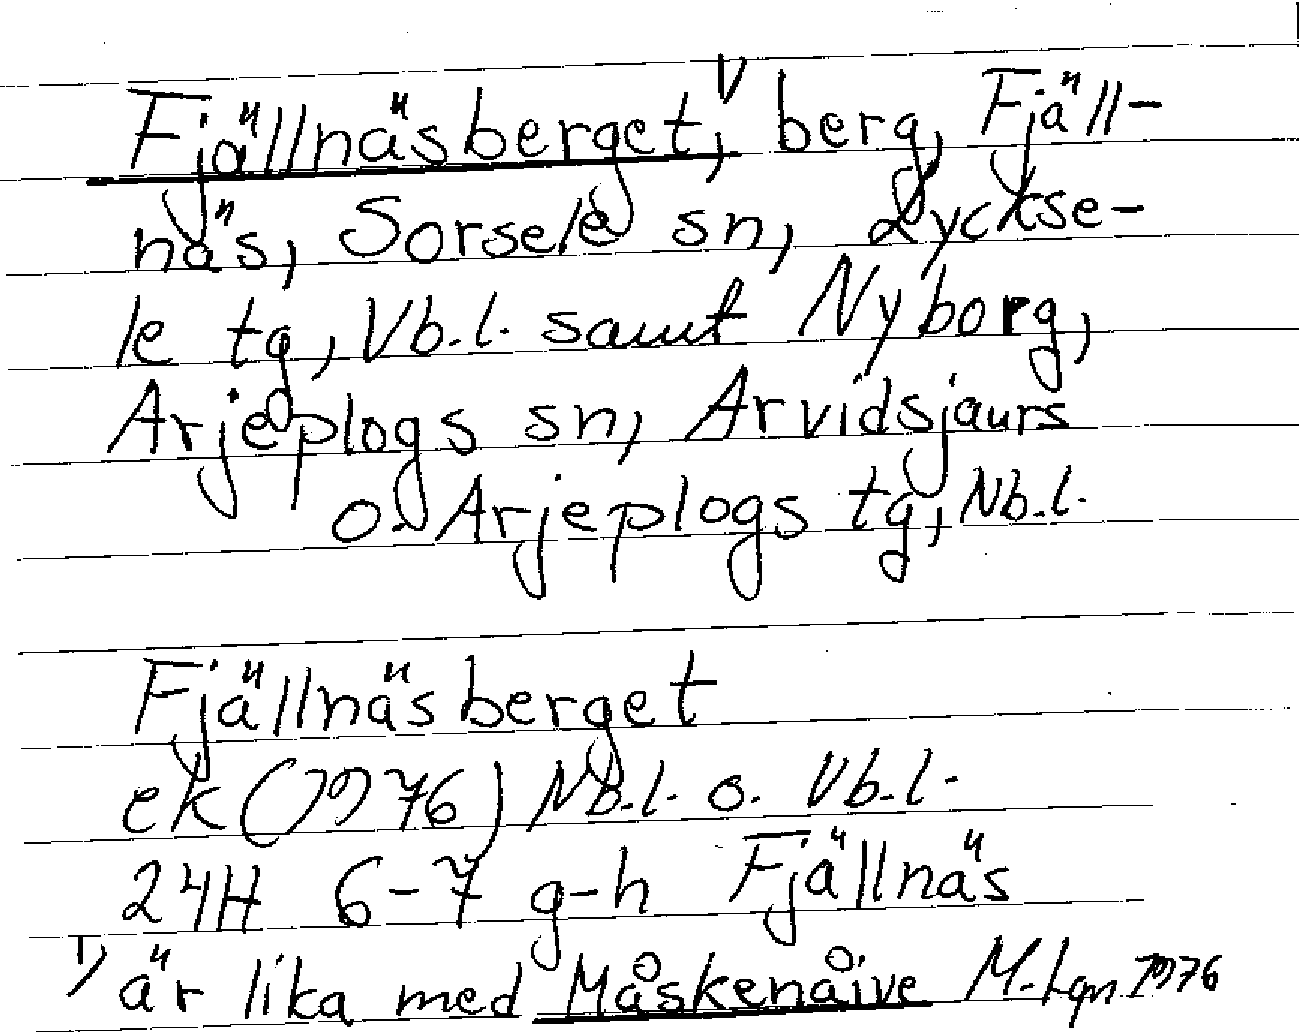 Fjällnäsberget,¹⁾ berg, Fjäll-
näs, Sorsele sn, Lyckse-
le tg, Vb.l. samt Nyborg,
Arjeplogs sn, Arvidsjaurs
o. Arjeplogs tg, Nb.l.
Fjällnäsberget
ek (1976) Nb.l. o. Vb.l.
24H 6-7 g-h Fjällnäs
¹⁾ är lika med Måskenåive M.Lgn. 1976